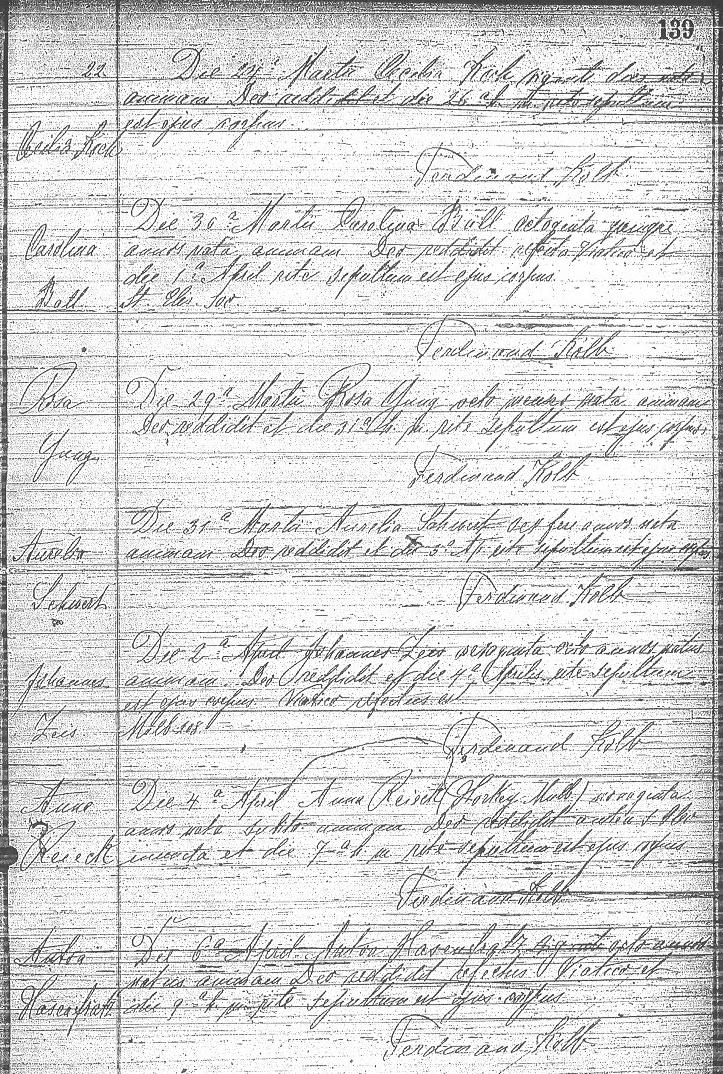 139
22
Die 24ª Martii Cecilia Koch viginti duos nata
animam Deo reddidit et die 26ª h. m. rite sepultum
est ejus corpus.
Cecilia Koch
Ferdinand Kolb
Die 30ª Martii Carolina Ball octoginta
Carolina
annos nata animam Deo reddidit refecta Viatico et
die 1ª April rite sepultum est ejus corpus.
Ball
St. Elis. Soc.
Ferdinand Kolb
Rosa
Die 29ª Martii Rosa Gung octo menses nata animam
Deo reddidit et die 31ª h. m. rite sepultum est ejus corpus.
Gung
Ferdinand Kolb
Die 31ª Martii Aurelia annos nata
Aurelia
animam Deo reddidit et die 3ª rite sepultum est ejus corpus.
Ferdinand Kolb
Die 2ª April Johannes Leis octo annos natus
Johannes
animam Deo reddidit et die 4ª Aprilis rite sepultum
est ejus corpus. Viatico refectus est.
Leis
Ferdinand Kolb
Anna
Die 4ª April Anna Reieck nonaginta
annos nata subito animam Deo reddidit
Reieck
et die 7ª h. m. rite sepultum est ejus corpus
Ferdinand Kolb
Anton
Die 6ª April Anton Hasenfratz octo annos
natus animam Deo reddidit refectus Viatico et
Hasenfratz
die 9ª h. m. rite sepultum est ejus corpus.
Ferdinand Kolb